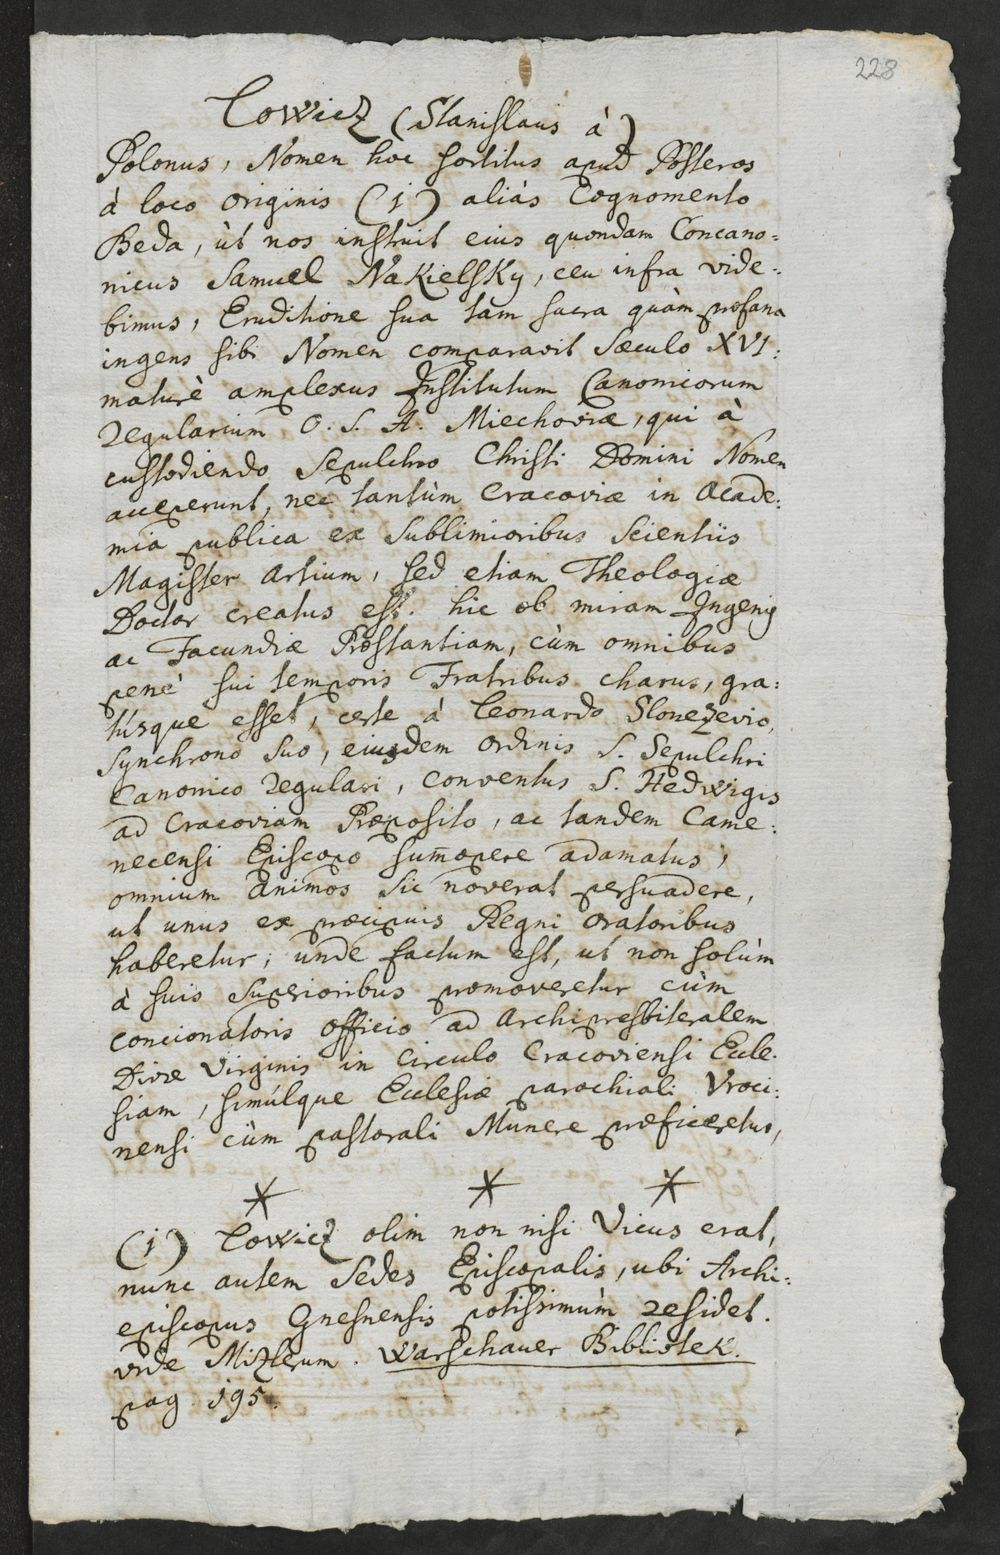 228
Lowicz (Stanislaus à)
Polonus, Nomen hoc sortitus apud Posteros
à loco originis (1) aliàs Cognomento
Beda, ùt nos instruit eius quondam Concano=
nicus Samuel Nakielsky, ceu infra vide=
bimus, Eruditione sua tam sacra quàm profana
ingens sibi Nomen comparavit Sæculo XVI:
maturè amplexus Institutum Canonicorum
Regularium O. S. A. Miechoviæ, qui à
custodiendo Sepulchro Christi Domini Nomen
acceperunt, nec tantùm Cracoviæ in Acade=
mia publica ex Sublimioribus Scientiis
Magister Artium, sed etiam Theologiæ
Doctor creatus est. hic ob miram Ingenij
ac Facundiæ Præstantiam, cùm omnibus
penè sui temporis Fratribus charus, gra=
túsque esset, certe à Leonardo Slonczevio,
Synchrono suo, eiusdem ordinis S. Sepulchri
Canonico Regulari, conventus S. Hedwigis
ad Cracoviam Præposito, ac tandem Came=
necensi Episcopo sum̄opere adamatus,
omnium animos sic noverat persuadere,
ut unus ex præcipuis Regni Oratoribus
haberetur; unde factum est, ut non solùm
à suis Superioribus promoveretur cùm
concionatoris officio ad Archipresbiteralem
Divæ Virginis in Circulo Cracoviensi Eccle=
siam, simúlque Ecclesiæ parochiali Vroci=
nensi cùm pastorali Munere præficeretur,
* * *
(1) Lowicz olim non nisi Vicus erat,
nunc autem Sedes Episcopalis, ubi Archi=
episcopus Gnesnensis potissimùm residet.
vide Mizlerum. Warschauer Bibliotek.
pag. 195.